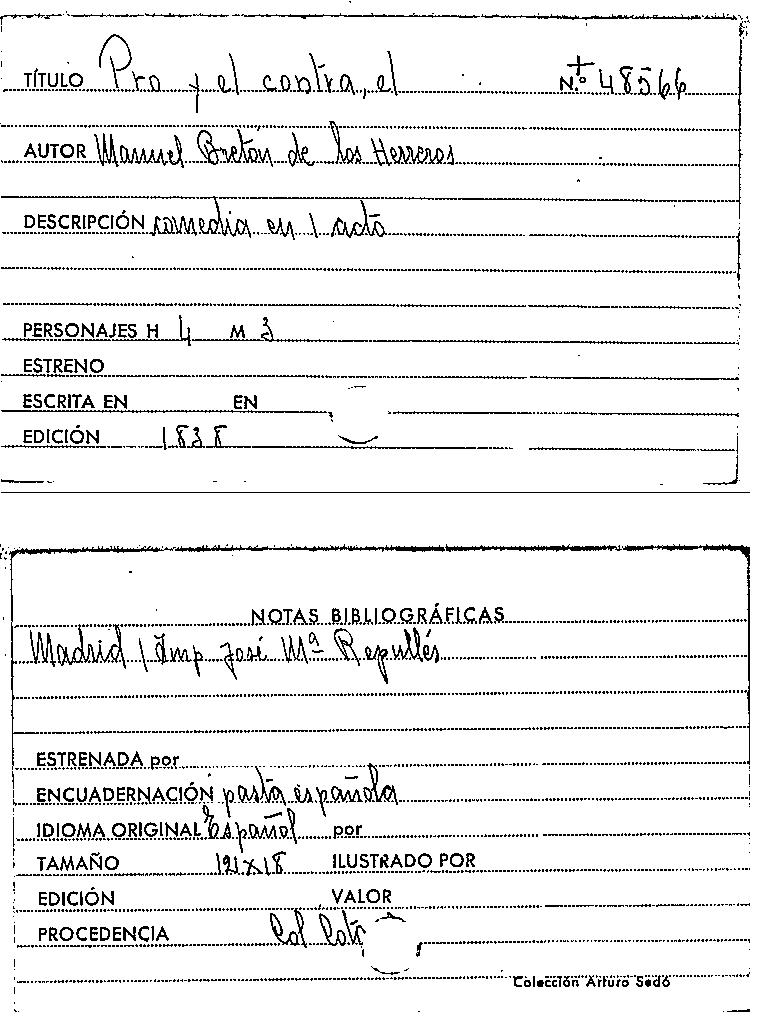 TÍTULO Pro y el contra, el N.º 48566
AUTOR Manuel Bretón de los Herreros
DESCRIPCIÓN comedia en 1 acto
PERSONAJES H 4 M 3
ESTRENO
ESCRITA EN EN
EDICIÓN 1838
NOTAS BIBLIOGRÁFICAS
Madrid / Imp. José Mª Repullés
ESTRENADA por
ENCUADERNACIÓN pasta española
IDIOMA ORIGINAL Español por
TAMAÑO 121x18 ILUSTRADO POR
EDICIÓN VALOR
PROCEDENCIA Col
Colección Arturo Sedó